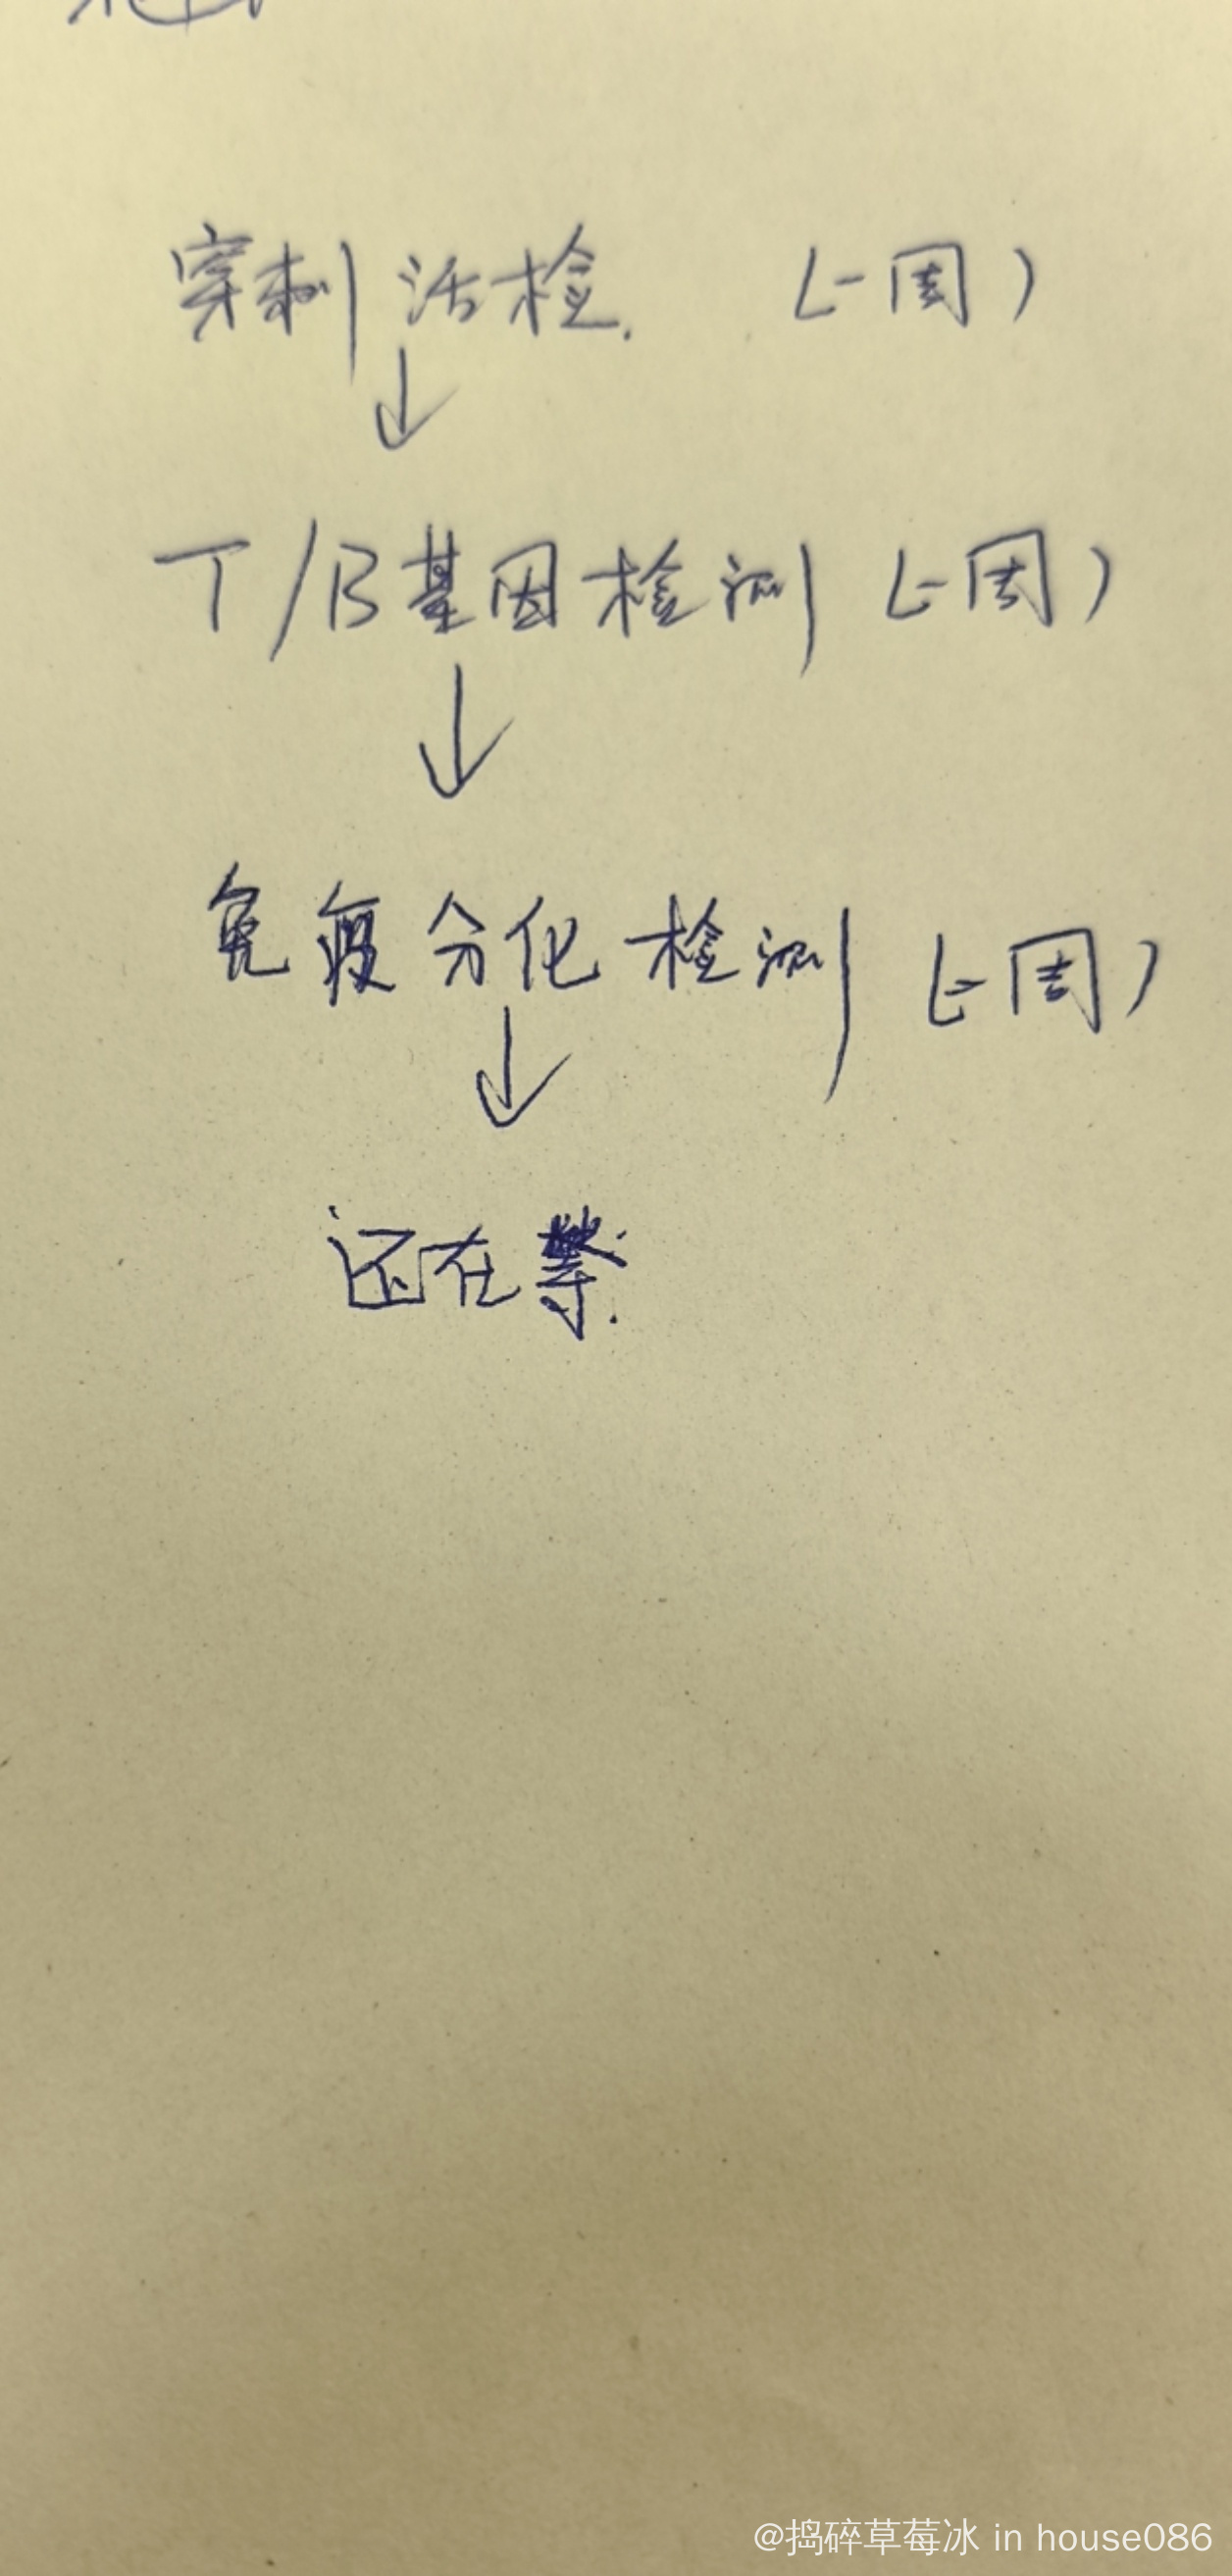 穿刺活检. (一周)
↓
T/B基因检测 (一周)
↓
免疫分化检测 (一周)
↓
还在等.
@捣碎草莓冰 in house086